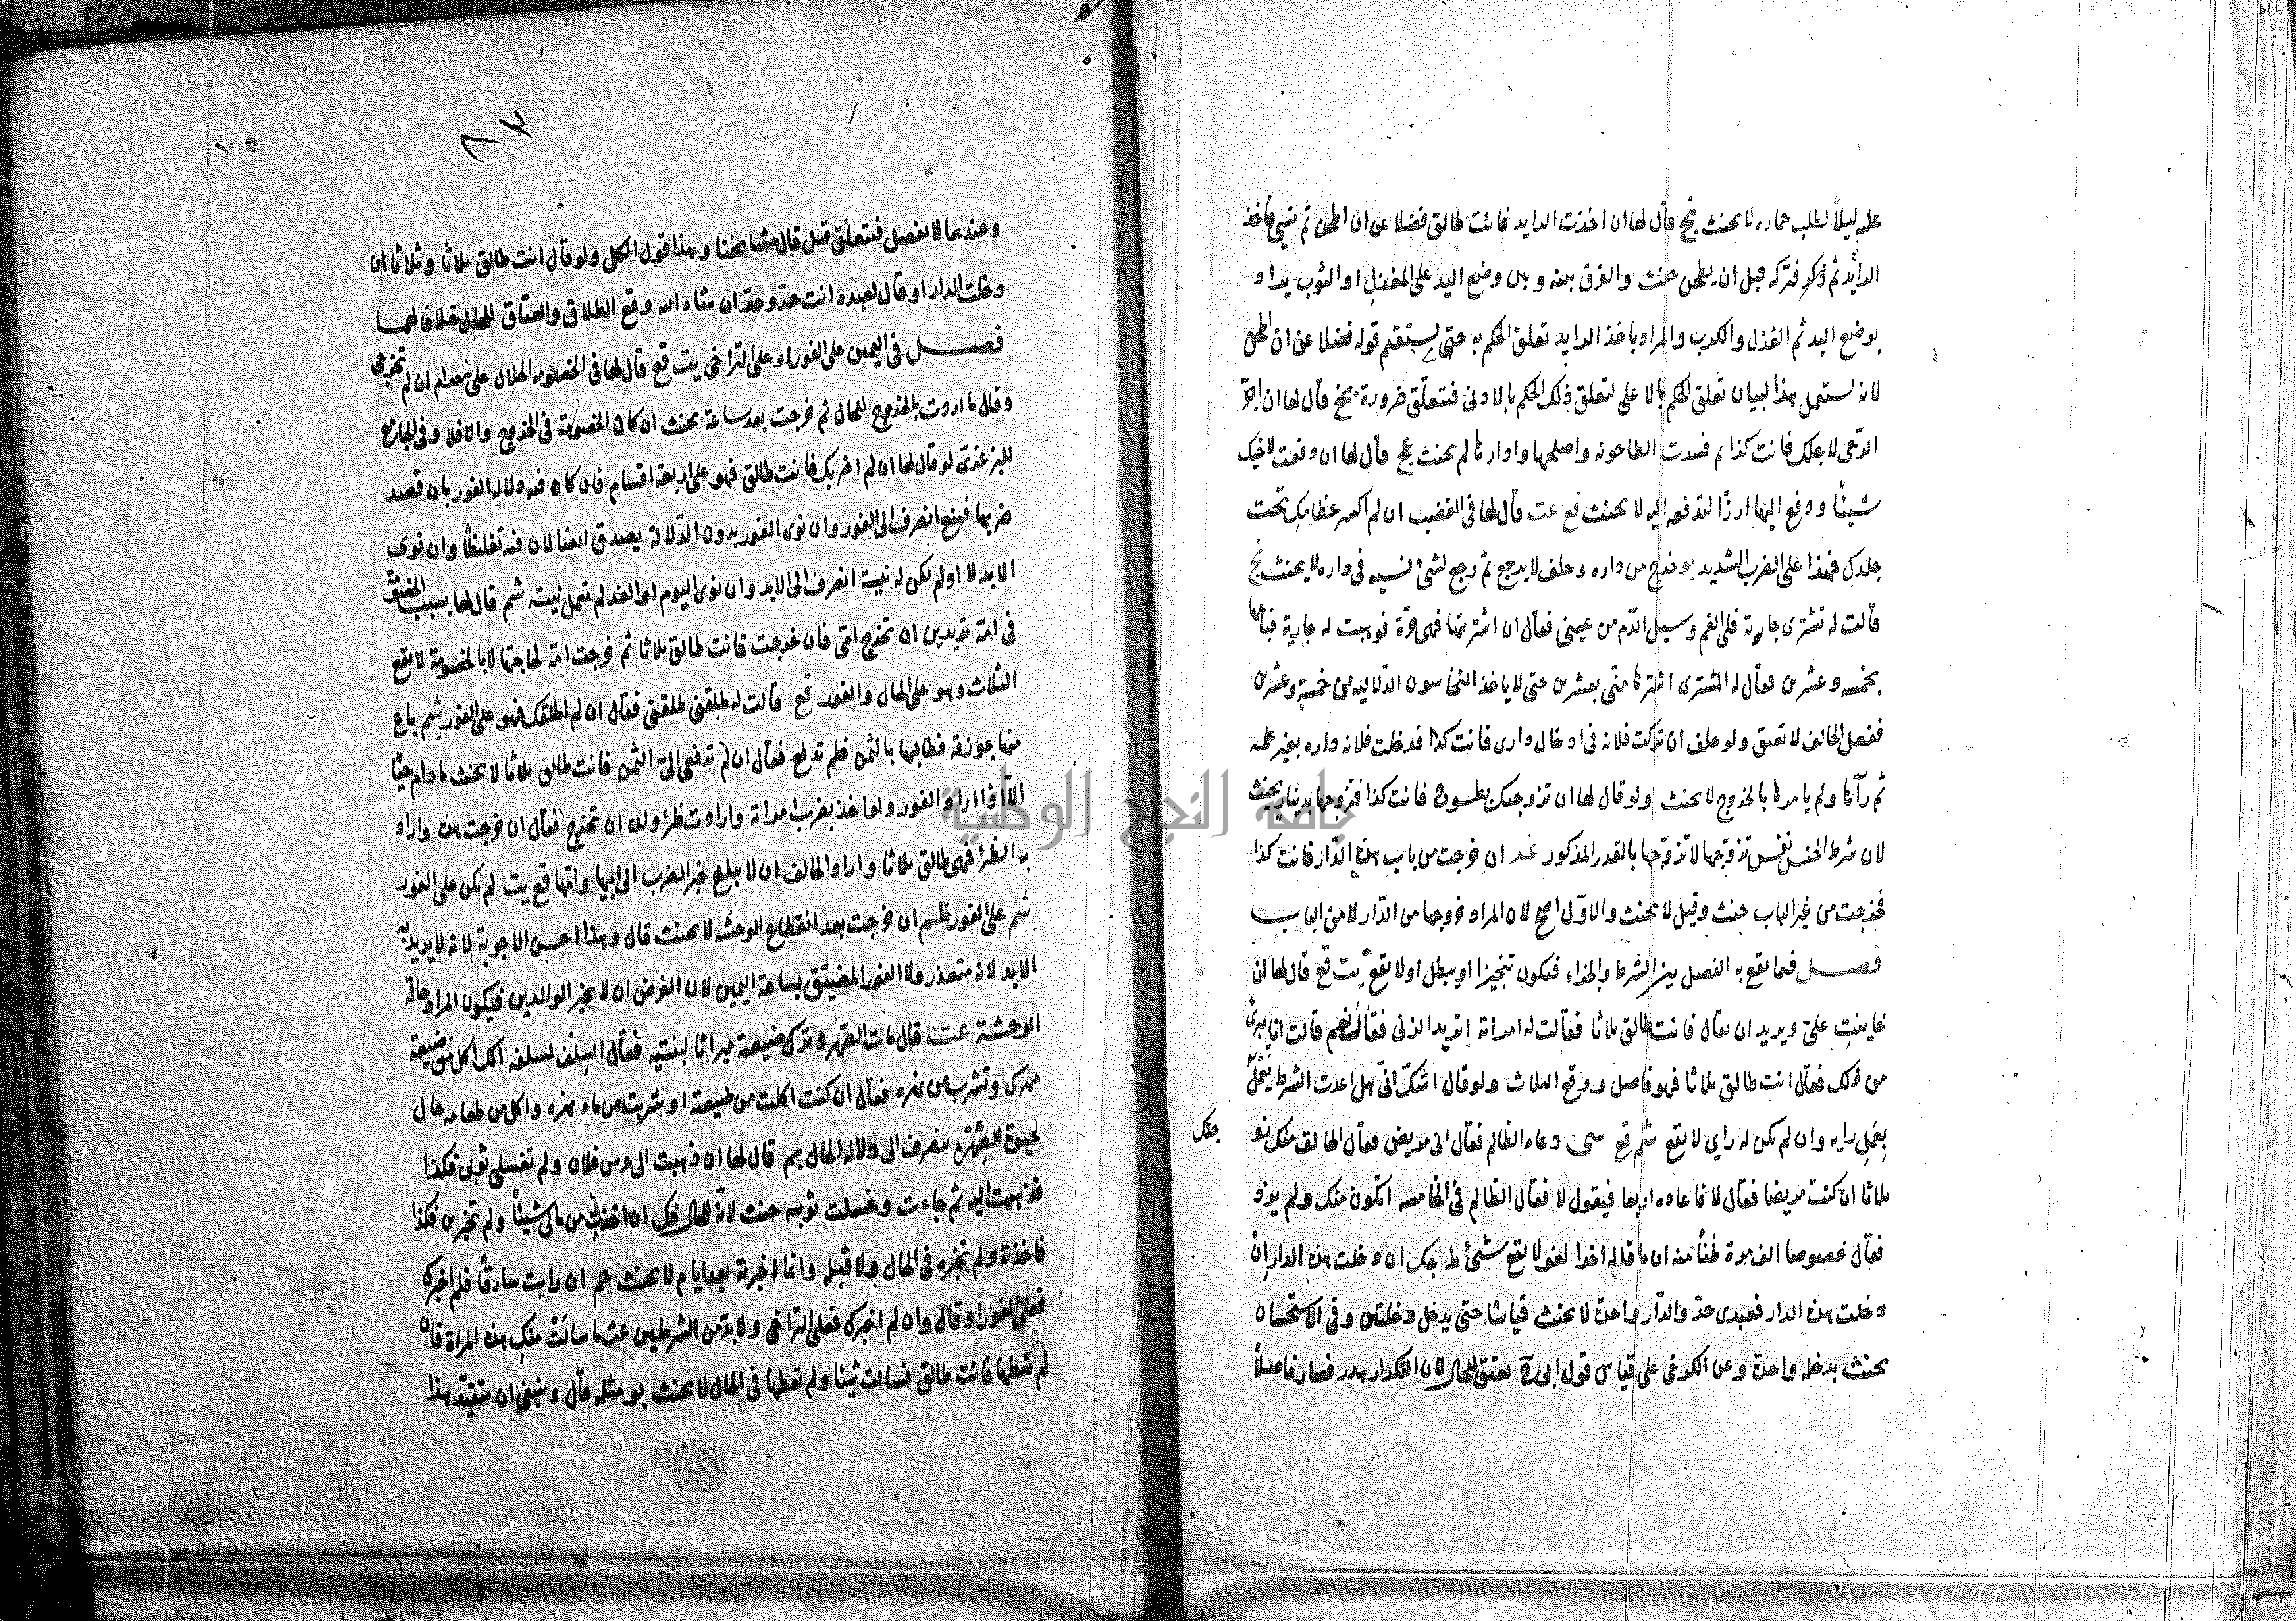 عليه ليلاً لطلب حماره لا يحنث بخ قال لها ان اخذت الدايد فانت طالق فضلا عن ان اطحن ثم نسي فاخذ
الدايد ثم ذكر فتركه قبل ان يطحن حنث والفرق بينه وبين وضع اليد على المغزل او الثوب يراد
بوضع اليد ثم الغزل والكرب والمراد باخذ الدايد تعلق الحكم به حتى يستقيم قوله فضلا عن ان اطحن
لانه يستعمل هذا لبيان تعلق الحكم بالاعلى لتعلق ذلك الحكم بالادنى فتتعلق ضرورة بخ قال لها ان اجر
الرحى لاجلك فانت كذا ثم فسدت الطاحونة واصلحها وادارها لم يحنث بخ قال لها ان دفعت لاخيك
شيئا ودفع اليها ارزا لتدفعه اليه لا يحنث قع عت قال لها في الغضب ان لم اكسر عظامك تحت
جلدك فهذا على الضرب الشديد بو خرج من داره وحلف لا يرجع ثم رجع لشئ نسيه في داره لا يحنث بخ
قالت له تشتري جارية فلي الغم وسيل الدم من عيني فقال ان اشتريتها فهي حرة فوهبت له جارية فباعها
بخمسة وعشرين فقال له المشتري اشترها مني بعشرين حتى لا ياخذ النخاسون الدلاليه من خمسة وعشرين
ففعل الحالف لا تعتق ولو حلف ان تركت فلانه في ادخال داري فانت كذا فدخلت فلانه داره بغير علمه
ثم رآها ولم يامرها بالخروج لا يحنث ولو قال لها ان تزوجتك بطسوج فانت كذا فتزوجها بدينار يحنث
لان شرط الحنث نفس تزوجها لا تزوجها بالقدر المذكور عد ان خرجت من باب هذه الدار فانت كذا
فخرجت من غير الباب حنث وقيل لا يحنث والاول اصح لان المراد خروجها من الدار لا من الباب
فصل فيما يقع به الفصل بين الشرط والجزاء فيكون تنجيزا او يبطل او لا يقع بت قع قال لها ان
خاينت عليّ ويريد ان يقال فانت طالق ثلاثا فقالت له امراته اتريد الزنى فقال نعم قالت انا بري
من ذلك فقال انت طالق ثلاثا فهو فاصل ووقع الثلاث ولو قال اشك اني هل اعدت الشرط يعمل
بغالب رايه وان لم يكن له راي لا يقع شم قع سى دعاه الظالم فقال اني مريض فقال احالف منك تو
ثلاثا ان كنت مريضا فقال لا فاعاده اربعا فيقول لا فقال الظالم في الخامسه اتكون منك ولم يزد
فقال خصوصا الف مرة ظنا منه ان ما قاله اخدا لغو لا يقع شئ ط جك ان دخلت هذه الدار ان
دخلت هذه الدار فعبدي حر والدار واحدة لا يحنث قياسا حتى يدخل دخلتين وفي الاستحسان
يحنث بدخلة واحدة وعن الكرخي على قياس قول ابي ح يعتق للحال لان التكرار هدر فصار فاصلا
جنك
٨٣
وعندهما لا يفصل فتتعلق قيل قال مشايخنا وهذا قول الكل ولو قال انت طالق ثلاثا وثلاثا ان
دخلت الدار او قال لعبده انت حر وحر ان شاء الله وقع الطلاق والعتاق للحال خلافا لهما
فصل في اليمين على الفور او على التراخي بت قع قال لها في الخصومه الحلال على حرام ان لم تخرجي
وقال ما اردت بالخروج للحال ثم خرجت بعد ساعة يحنث ان كان الخصومة في الخروج والا فلا وفي الجامع
للبرغزي لو قال لها ان لم اضربك فانت طالق فهو على اربعة اقسام فان كان فيه دلالة الفور بان قصد
ضربها فمنع انصرف الى الفور وان نوى الفور بدون الدلالة يصدق ايضا لان فيه تغليظا وان نوى
الابد لا او لم يكن له نية انصرف الى الابد وان نوى اليوم او الغد لم تعمل نيته شم قال لها بسبب الخصومة
في امة تريدين ان تخرج امتي فان خرجت فانت طالق ثلاثا ثم خرجت امة لحاجتها لا بالخصومة لا يقع
الثلاث وهو على الحال والفور قع قالت له طلقني طلقني فقال ان لم اطلقك فهو على الفور شم باع
منها جوزقة فطالبها بالثمن فلم تدفع فقال ان لم تدفعي اليّ الثمن فانت طالق ثلاثا لا يحنث ما دام حيا
الا اذا اراد الفور ولو اخذ بضرب امراته وارادت ظئر ولده ان تخرج فقال ان خرجت هذه واراد
به الظئر فهي طالق ثلاثا واراد الحالف ان لا يبلغ خبر الضرب الى ابيها وامها قع بت لم يكن على الفور
شم على الفور ظم ان خرجت بعد انقطاع الوحشه لا يحنث قال وهذا احسن الاجوبة لانه لا يريد به
الابد لانه متعذر ولا الفور المضيق بساعة اليمين لان الغرض ان لا يخبر الوالدين فيكون المراد حالة
الوحشة عت قال مات الصهر وترك ضيعة ميراثا لبنتيه فقال السلف لسلفه انك اكل من ضيعة
صهرك وتشرب من نهره فقال ان كنت اكلت من ضيعته او شربت من ماء نهره واكل من طعامه حال
حيوة الصهر ينصرف الى دلالة الحال بم قال لها ان ذهبت الى عرس فلان ولم تغسلي ثوبي فكذا
فذهبت اليه ثم جاءت وغسلت ثوبه حنث لانه للحال فك ان اخذت من مالي شيئا ولم تخبرين فكذا
فاخذته ولم تخبره في الحال ولا قبله وانما اخبرته بعد ايام لا يحنث حم ان رايت سارقا فلم اخبرك
فعلى الفور او قال وان لم اخبرك فعلى التراخي ولا بد من الشرطين عت ما سألت منك هذه المراة فان
لم تعطها فانت طالق فسالت شيئا ولم تعطها في الحال لا يحنث بو مثله قال وينبغي ان يتقيد هذا
جامعة النجاح الوطنية